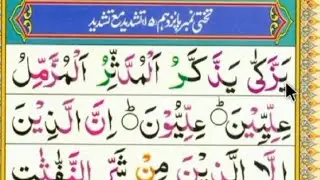 تختی نمبر پانزدہم ۱۵ تشدید مع تشدید
یَزَّکّٰی یَذَّکَّرُ الْمُدَّثِّرُ الْمُزَّمِّلُ
عِلِّیِّیْنَ ؕ عِلِّیُّوْنَ ؕ اِنَّ الَّذِیْنَ
اِلَّا الَّذِیْنَ مِنْ شَرِّ النَّفّٰثٰتِ